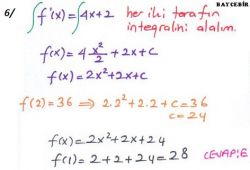 BAYCEBİR
6/ ∫f'(x)=∫4x+2 her iki tarafın
integralini alalım.
f(x)=4x²/2+2x+c
f(x)=2x²+2x+c
f(2)=36 ⇒ 2.2²+2.2+c=36
c=24
f(x)=2x²+2x+24
f(1)=2+2+24=28 CEVAP:E